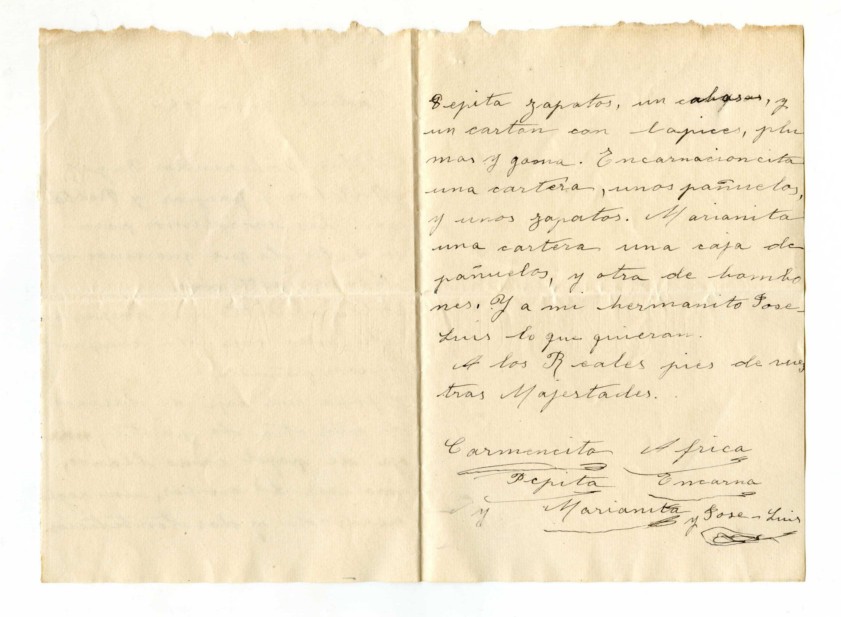 Pepita zapatos, un cabasas, y
un carton con lapices, plu
mas y goma. Encarnacioncita
una cartera, unos pañuelos,
y unos zapatos. Marianita
una cartera una caja de
pañuelos, y otra de bombo
nes. Y a mi hermanito Jose-
Luis lo que quieran.
A los Reales pies de vues
tras Majestades.
Carmencita Africa
Pepita Encarna
y Marianita y Jose-Luis